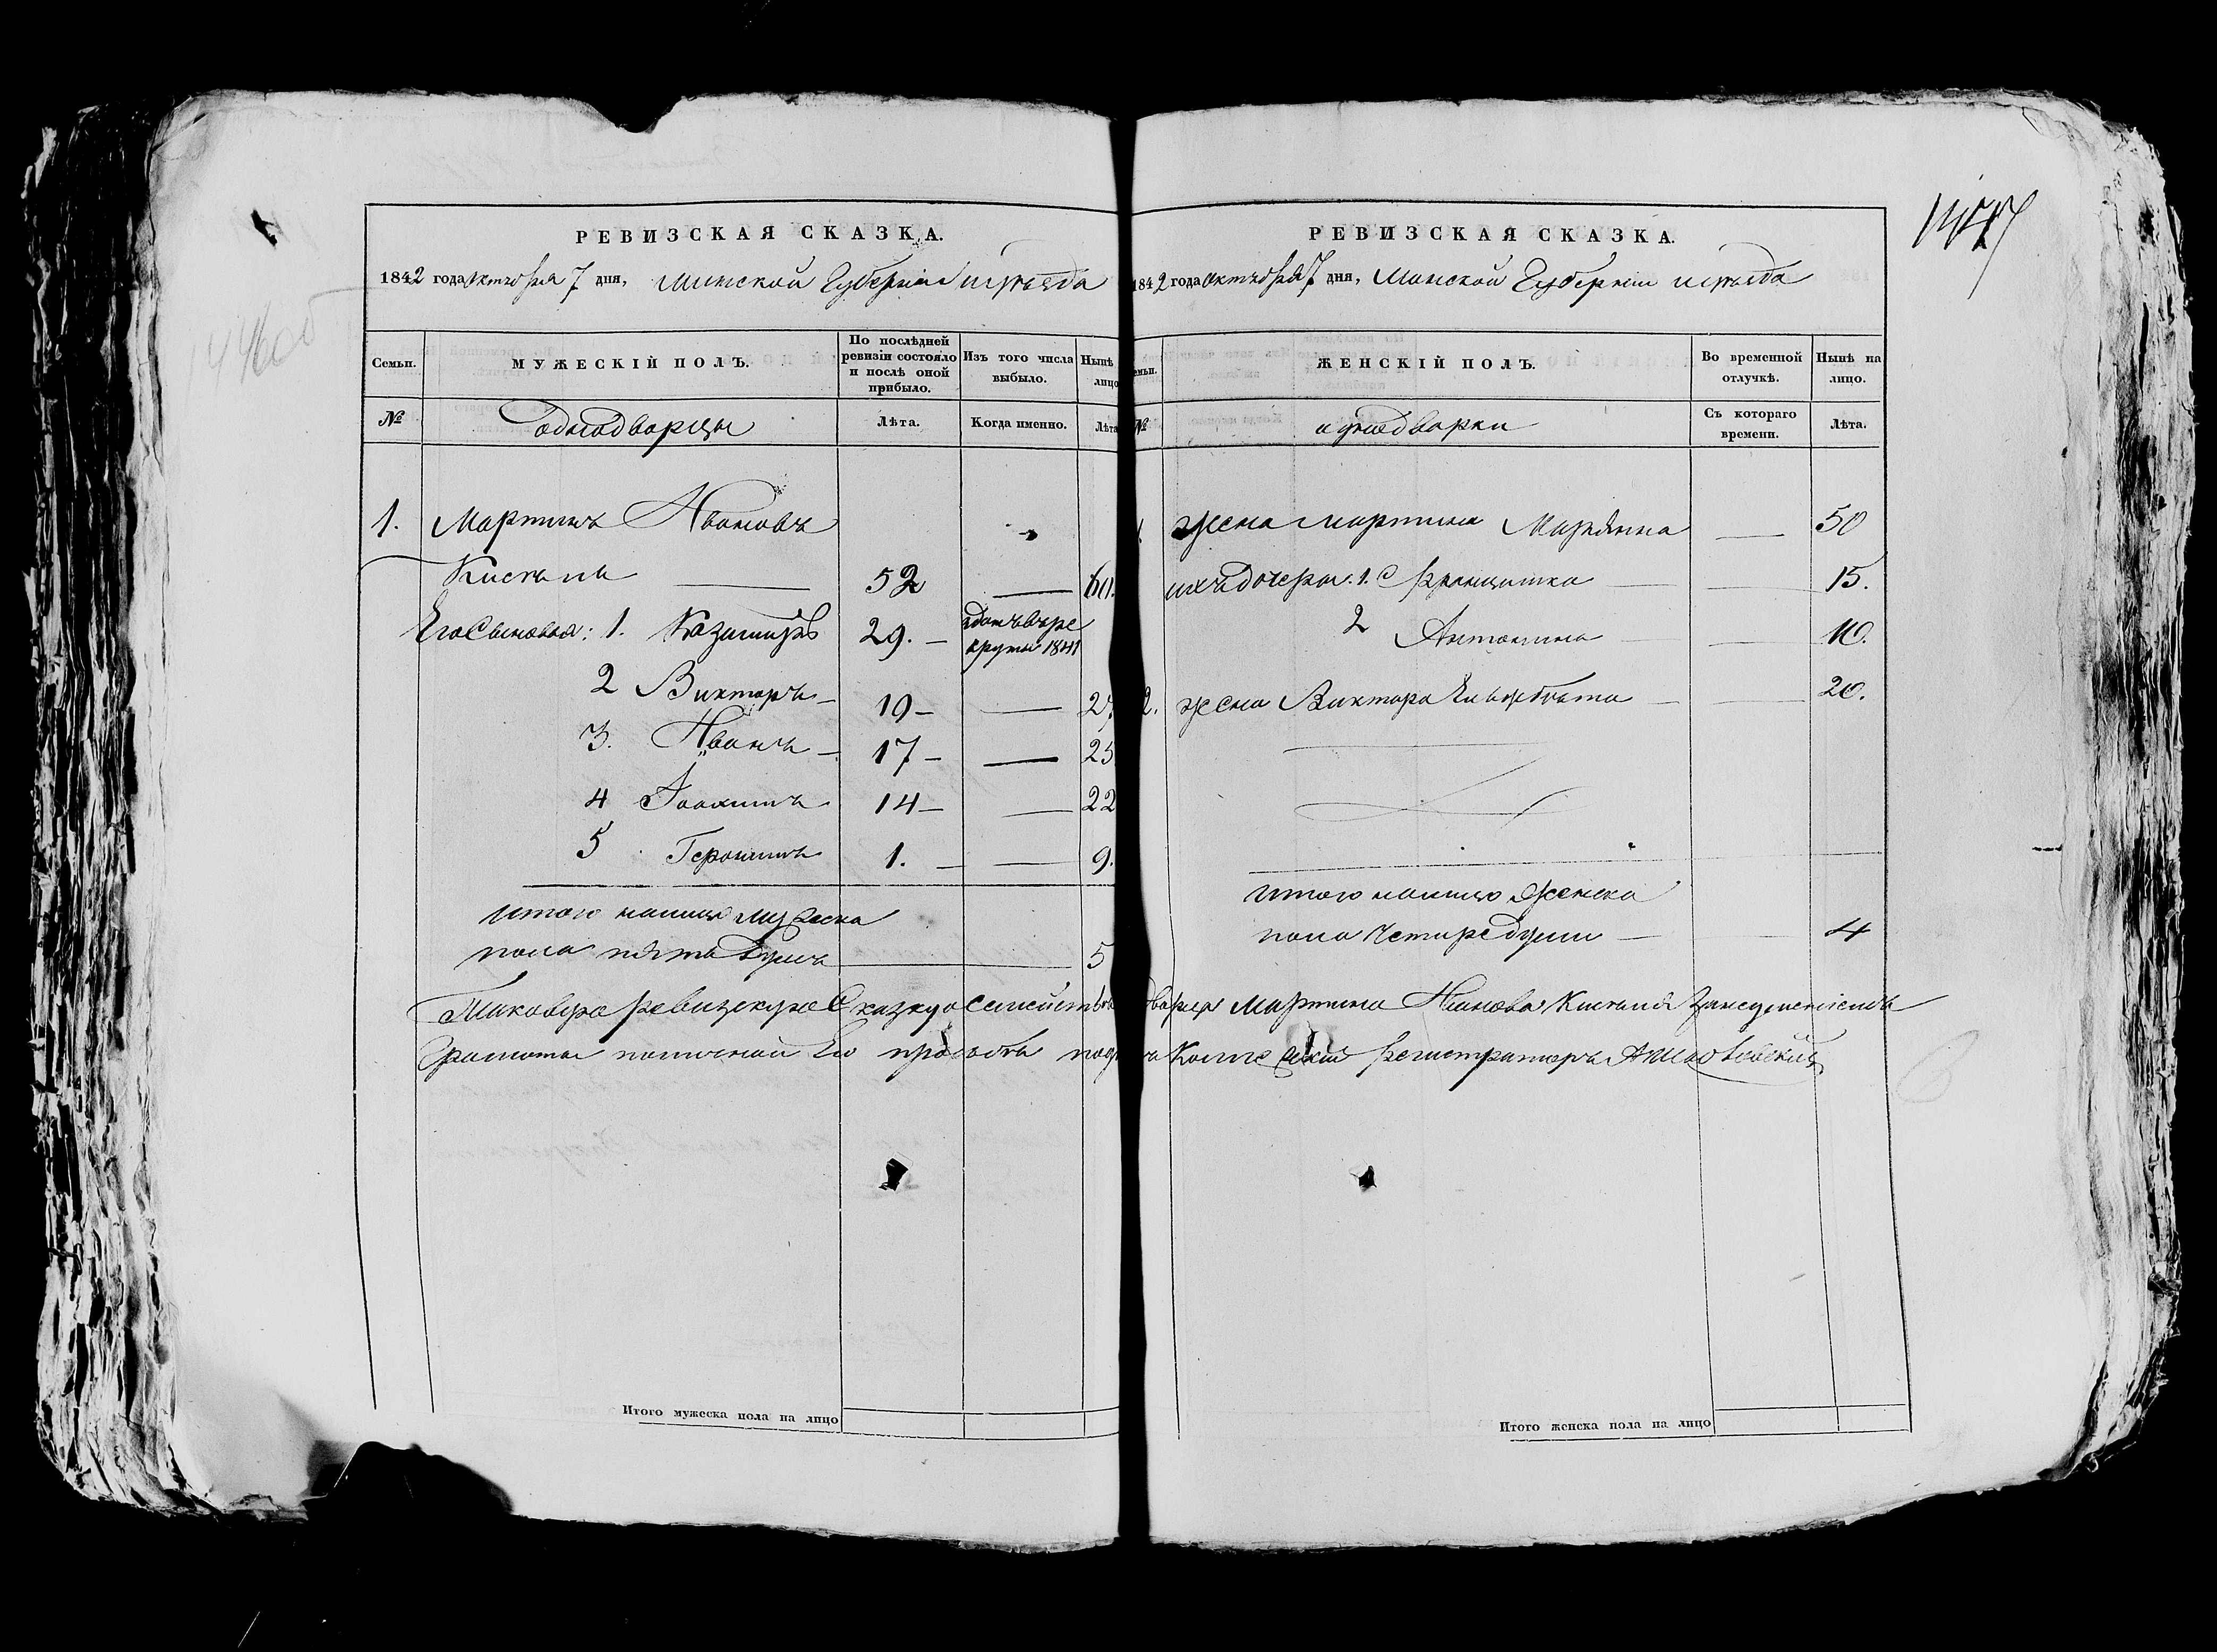 РЕВИЗСКАЯ СКАЗКА.
1842 года октября 7 дня, Минской Губерніи и уѣзда
Семьи.
МУЖЕСКІЙ ПОЛЪ.
По послѣдней ревизіи состояло и послѣ оной прибыло.
Изъ того числа выбыло.
Нынѣ лицо
№
однодворцы
Лѣта.
Когда именно.
Лѣта
1. Мартинъ Ивановъ
Кисель 52 60.
Его Сыновья: 1. Казимиръ 29. 1841
2 Викторъ 19 27
3. Иванъ 17 25
4 Іоахимъ 14 22
5 Геронимъ 1. 9.
Итого налицо мужеска
пола пять душъ 5
Итого мужеска пола на лицо
РЕВИЗСКАЯ СКАЗКА.
1842 года октября 7 дня, Минской Губерніи и уѣзда
1447
емьи.
ЖЕНСКІЙ ПОЛЪ.
Во временной отлучкѣ.
Нынѣ на лицо.
№
однодворки
Съ котораго времени.
Лѣта.
1. жена Мартина Марьянна 50
ихъ дочери: 1. Францишка 15.
2 Антонина 10.
2. жена Виктора Ельжбѣта 20.
Итого налицо женска
пола четыре души 4
Таковую ревизскую Сказку о семействѣ дворца Мартина Иванова Киселя за неумѣніемъ
Грамоты по личной Его прозьбѣ Коллежскій Регистраторъ
Итого женска пола на лицо